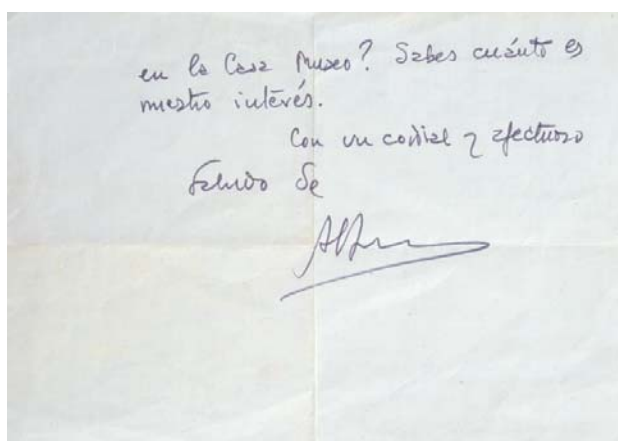 en la Casa Museo? Sabes cuánto es
nuestro interés.
Con un cordial y afectuoso
saludo de